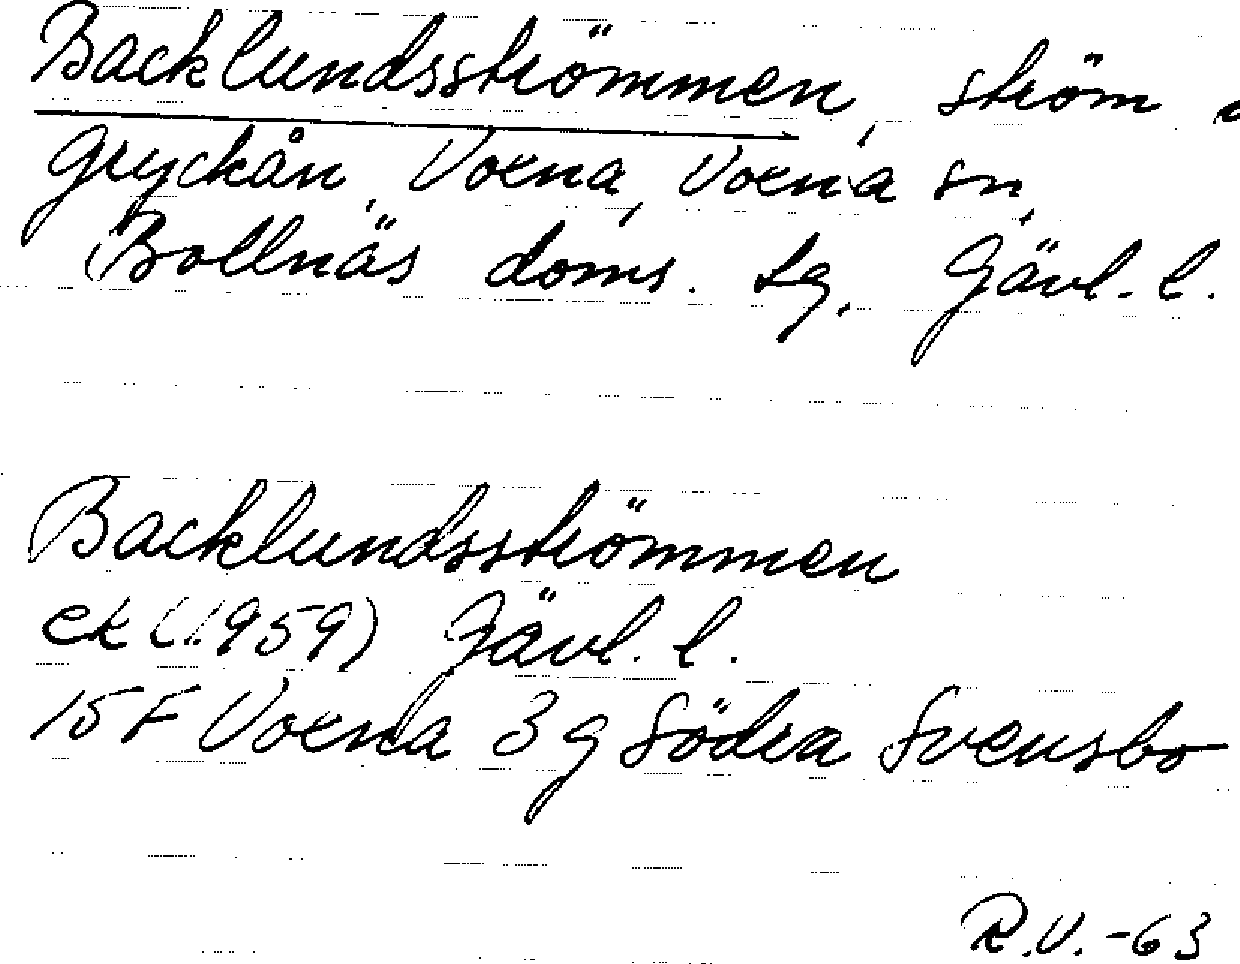 Backlundsströmmen, ström i
Gryckån, Voxna, Voxna sn,
Bollnäs doms. tg. Gävl. l.
Backlundsströmmen
ek (1959) Gävl. l.
15 F Voxna 3 g Södra Svensbo
R.V. -63